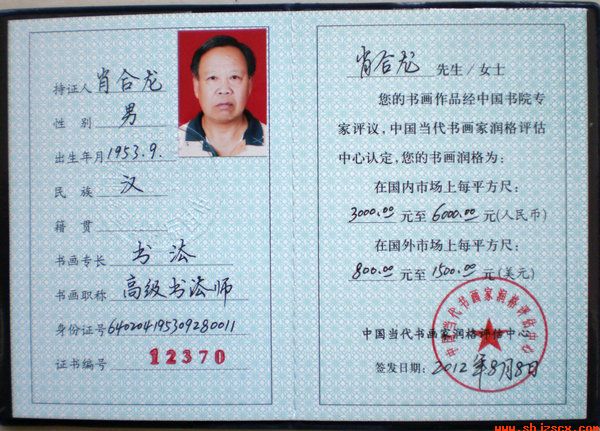 持证人 肖合龙
性别 男
出生年月 1953.9.
民族 汉
籍贯
书画专长 书法
书画职称 高级书法师
身份证号 640204195309280011
证书编号 12370
肖合龙 先生/女士
您的书画作品经中国书院专
家评议，中国当代书画家润格评估
中心认定，您的书画润格为：
在国内市场上每平方尺：
3000.00 元至 6000.00 元(人民币)
在国外市场上每平方尺：
800.00 元至 1500.00 元(美元)
中国当代书画家润格评估中心
签发日期：2012年8月8日
中国当代书画家润格评估中心
www.shjzscx.com